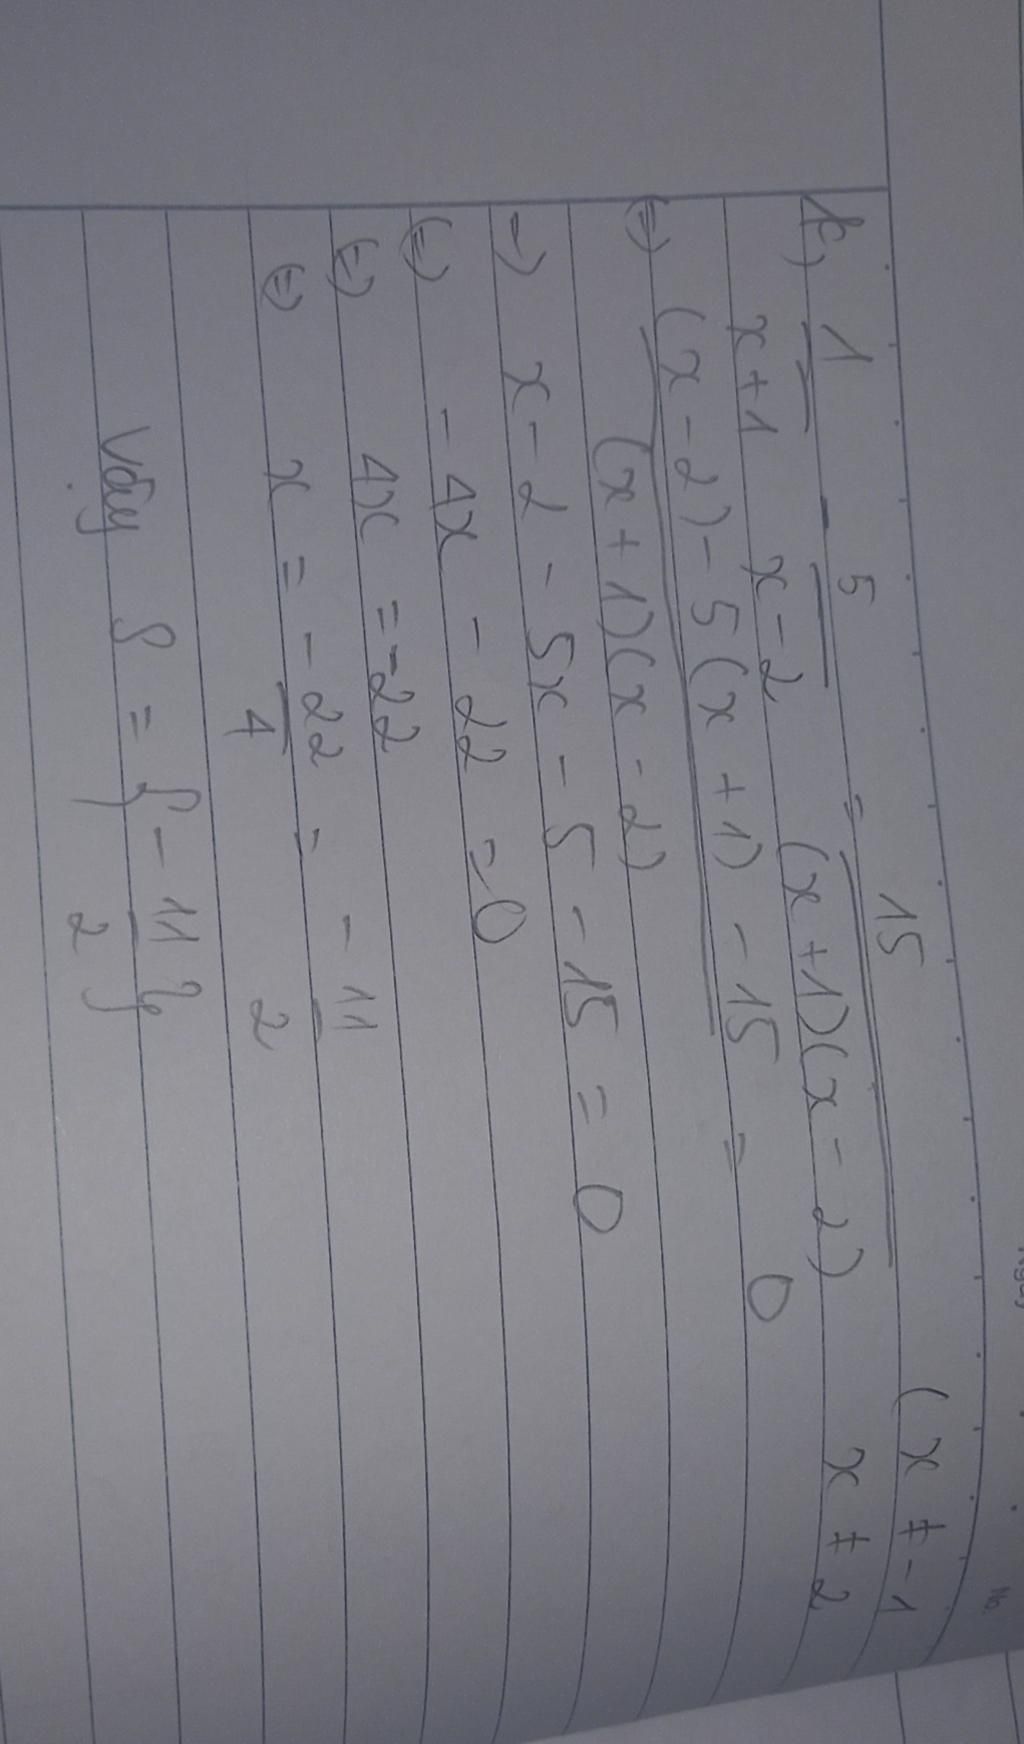 k) 1/(x+1) - 5/(x-2) = 15/((x+1)(x-2)) (x ≠ -1
x ≠ 2
(=) ((x-2)-5(x+1)-15)/((x+1)(x-2)) = 0
=) x-2-5x-5-15 = 0
(=) -4x-22 = 0
(=) 4x = -22
(=) x = -22/4 = -11/2
Vậy S = {-11/2}
No.